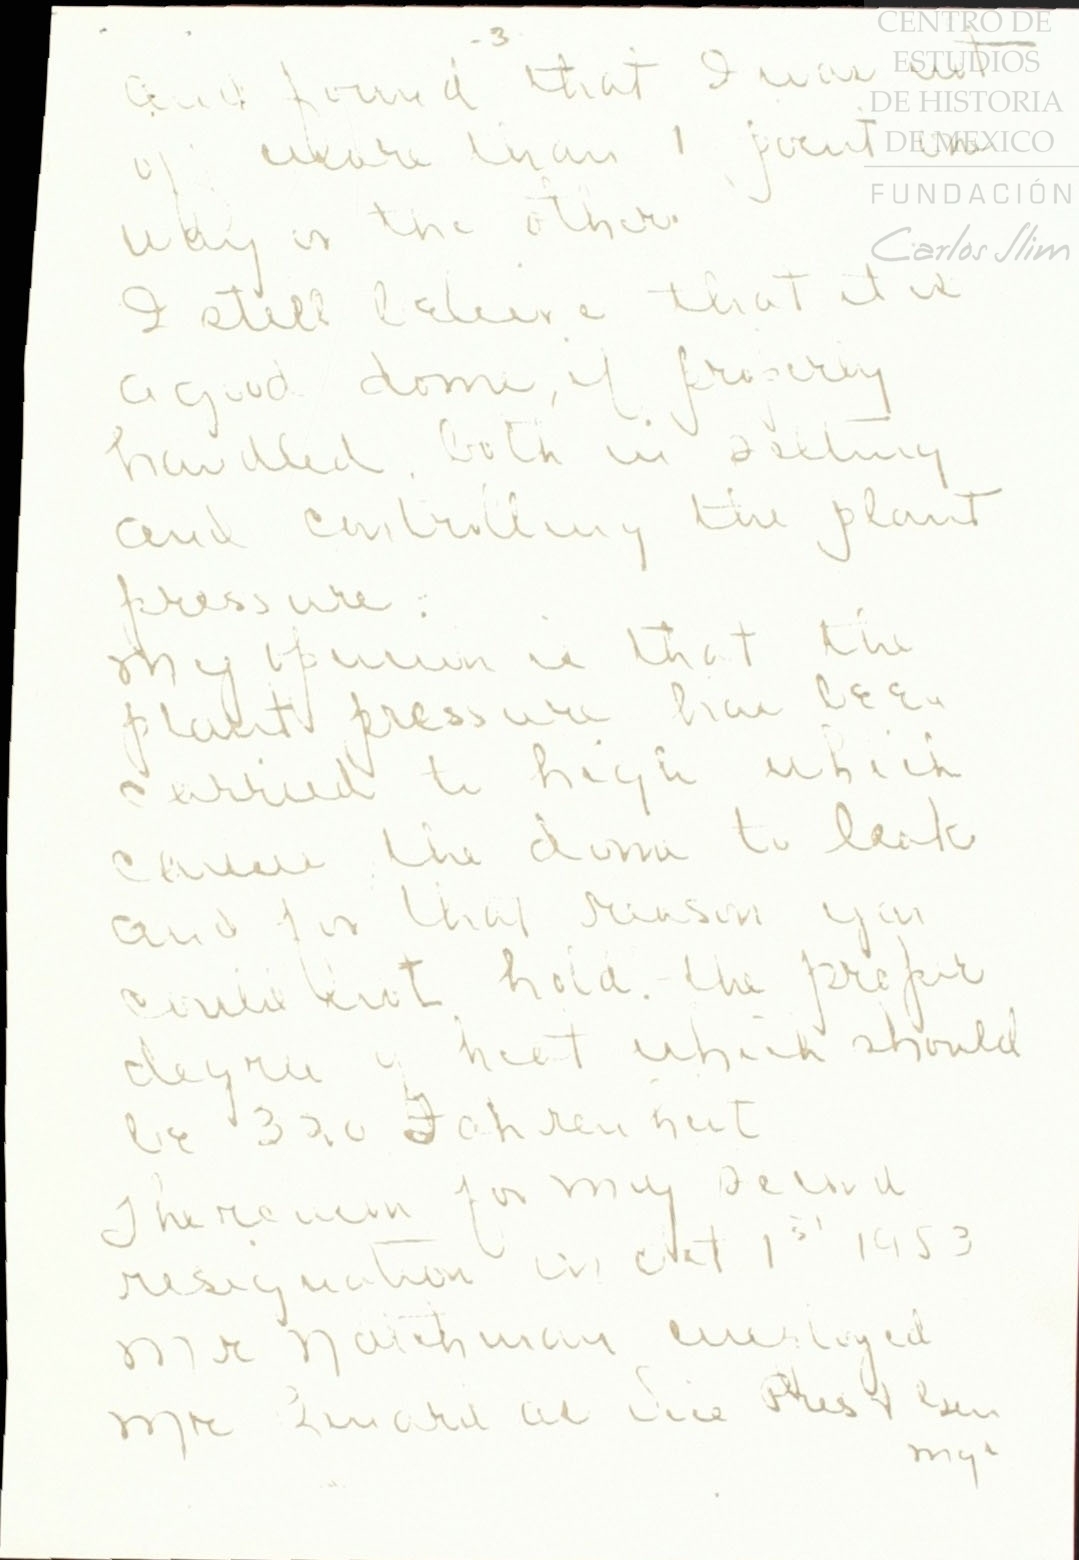 -3-
and found that I was not
of more than 1 point one
way or the other.
I still believe that it is
a good dome, if properly
handled, both in setting
and controlling the plant
pressure.
My opinion is that the
plant pressure has been
carried to high which
cause the dome to leak
and for that reason you
could not hold the proper
degree of heat which should
be 320 Fahrenheit
The reason for my second
resignation in Oct 1st 1953
Mr employed
Mr as Vice Pres & Gen
Mgr
CENTRO DE
ESTUDIOS
DE HISTORIA
DE MEXICO
FUNDACIÓN
Carlos Slim